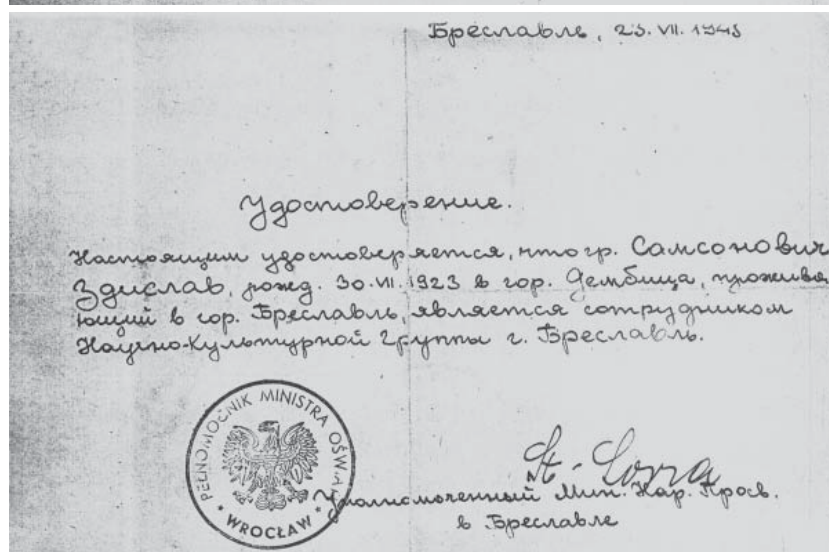 Бреславль, 23. VII. 1945
Удостоверение.
Настоящим удостоверяется, что гр. Самсонович
Здислав, рожд. 30.VII.1923 в гор. Дембица, прожива
ющий в гор. Бреславль, является сотрудником
Научно-Культурной Группы г. Бреславль.
PEŁNOMOCNIK MINISTRA OŚWIATY
* WROCŁAW *
St.
Уполномоченный Мин. Нар. Просв.
в Бреславле